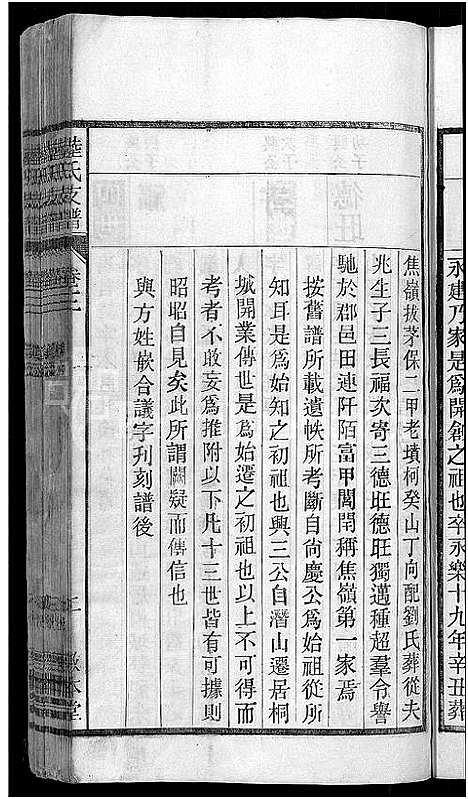 永建乃家是爲開創之祖也卒永樂十九年辛丑葬
焦嶺拔茅保二甲老墳柯癸山丁向配劉氏葬從夫
兆生子三長福次寄三德旺德旺獨邁種超羣令譽
馳於郡邑田連阡陌富甲閭閈稱焦嶺第一家焉
按舊譜所載遺帙所考斷自尙慶公爲始祖從所
知耳是爲始知之初祖也與三公自潛山遷居桐
城開業傳世是爲始遷之初祖也以上不可得而
考者不敢妄爲推附以下凡十三世皆有可據則
昭昭自見矣此所謂闕疑而傳信也
與方姓嵌合議字刊刻譜後
氏支譜
卷二
本堂
德旺